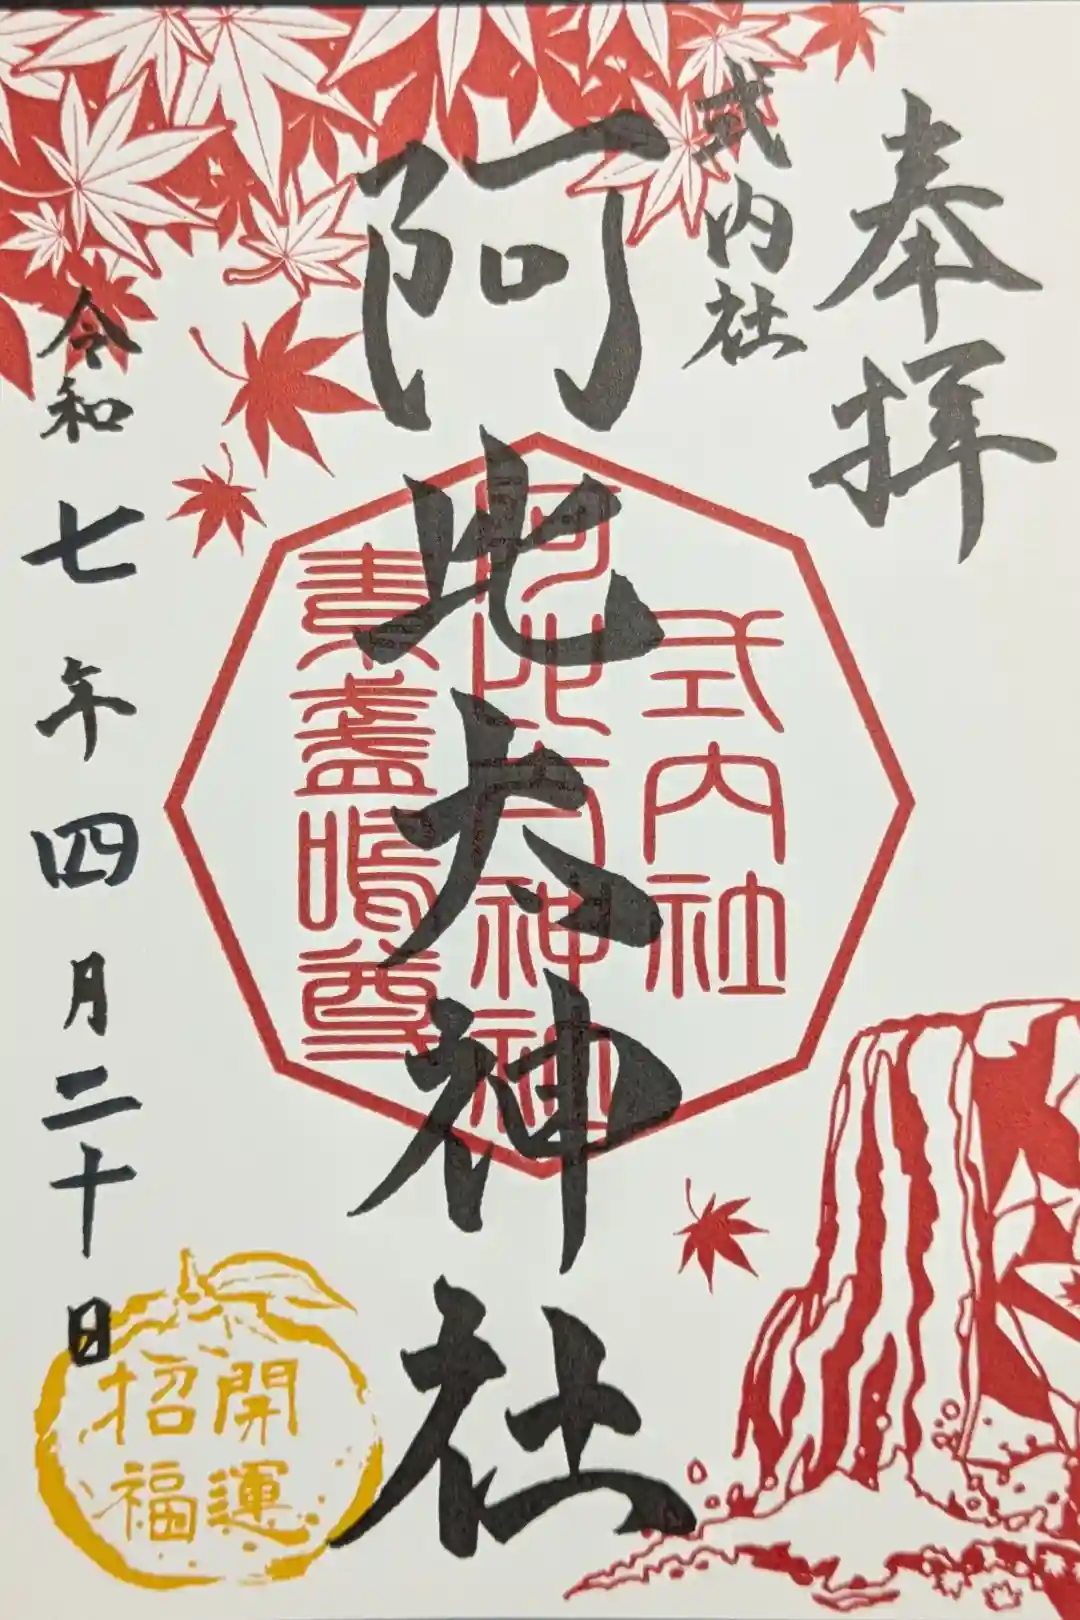 奉拝
式内社
阿比太神社
令和七年四月二十日
式内社
阿比太神社
素盞嗚尊
開運
招福